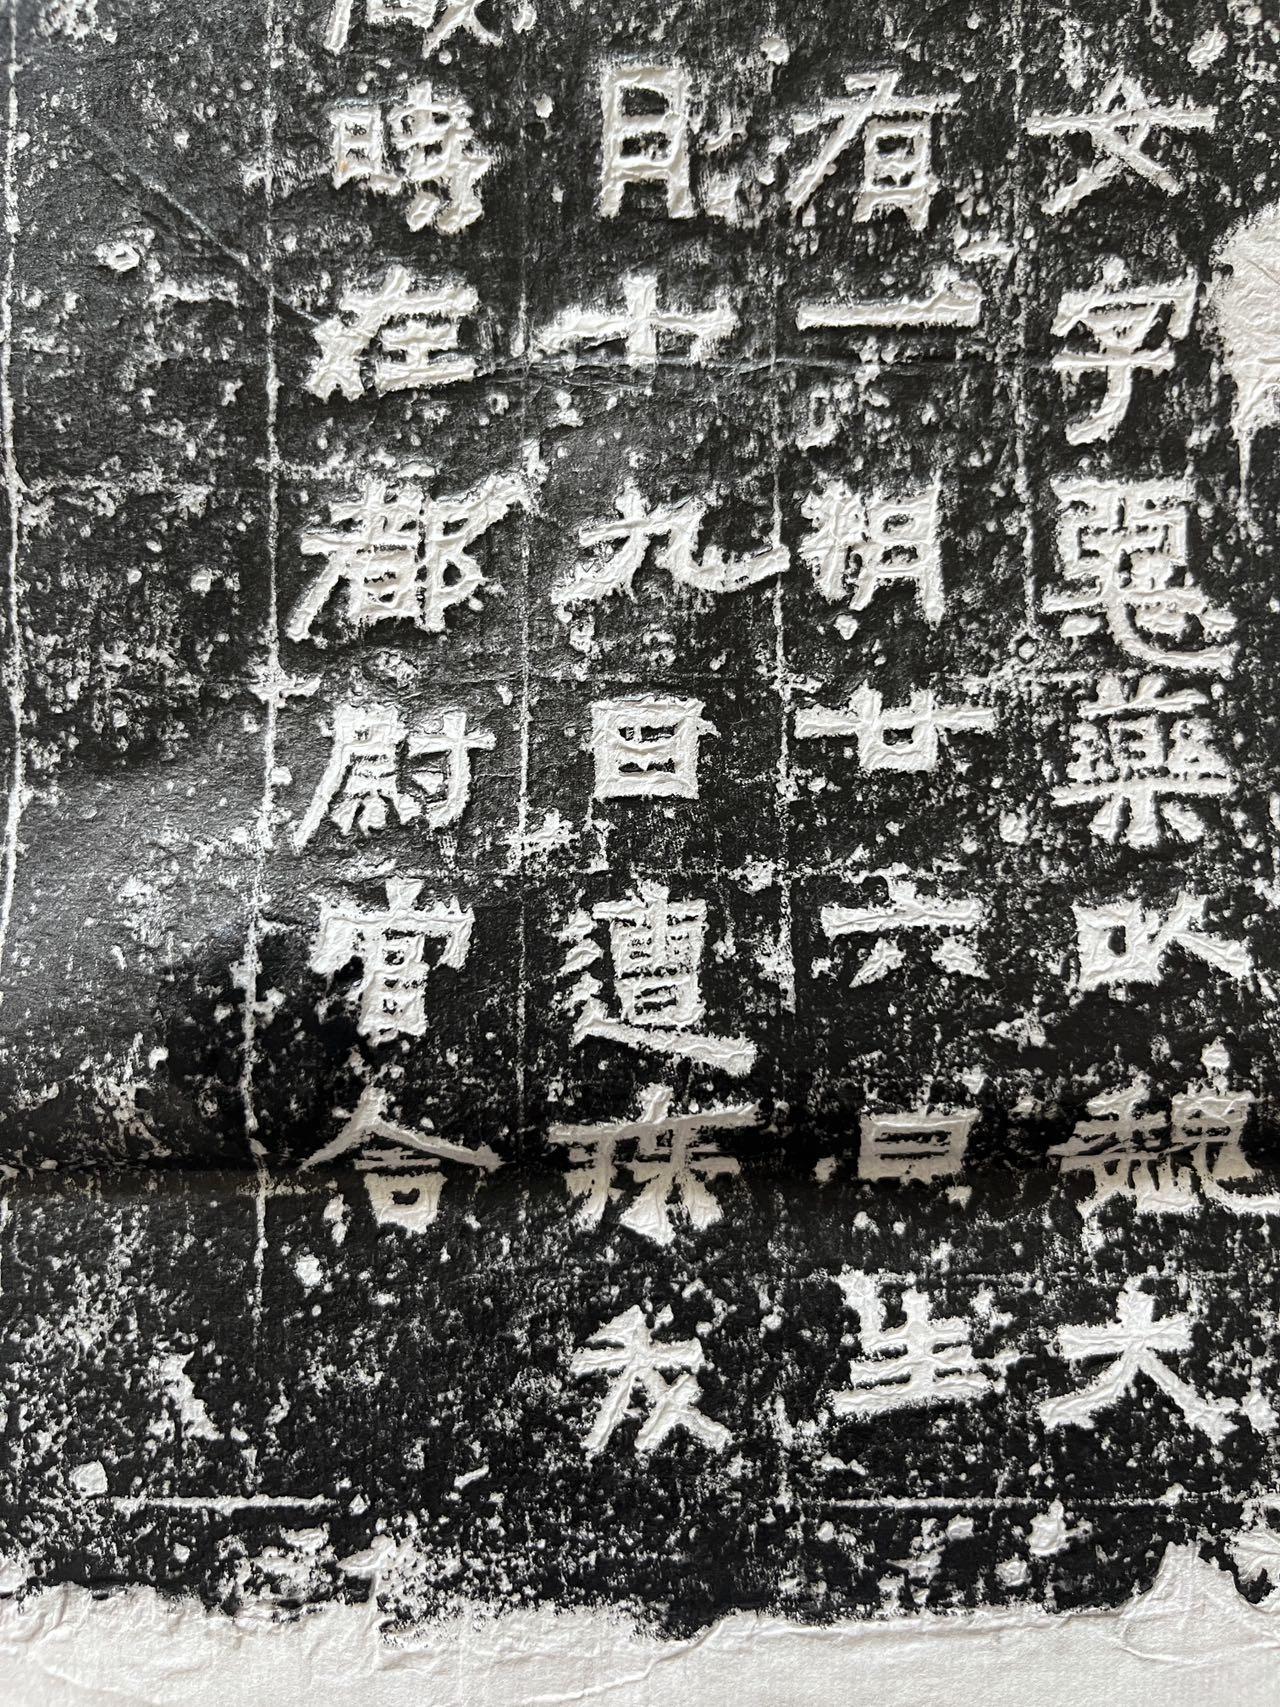 女字惡藥以魏大
有一朔廿六日生
月十九日遭疾
時在都尉官舍